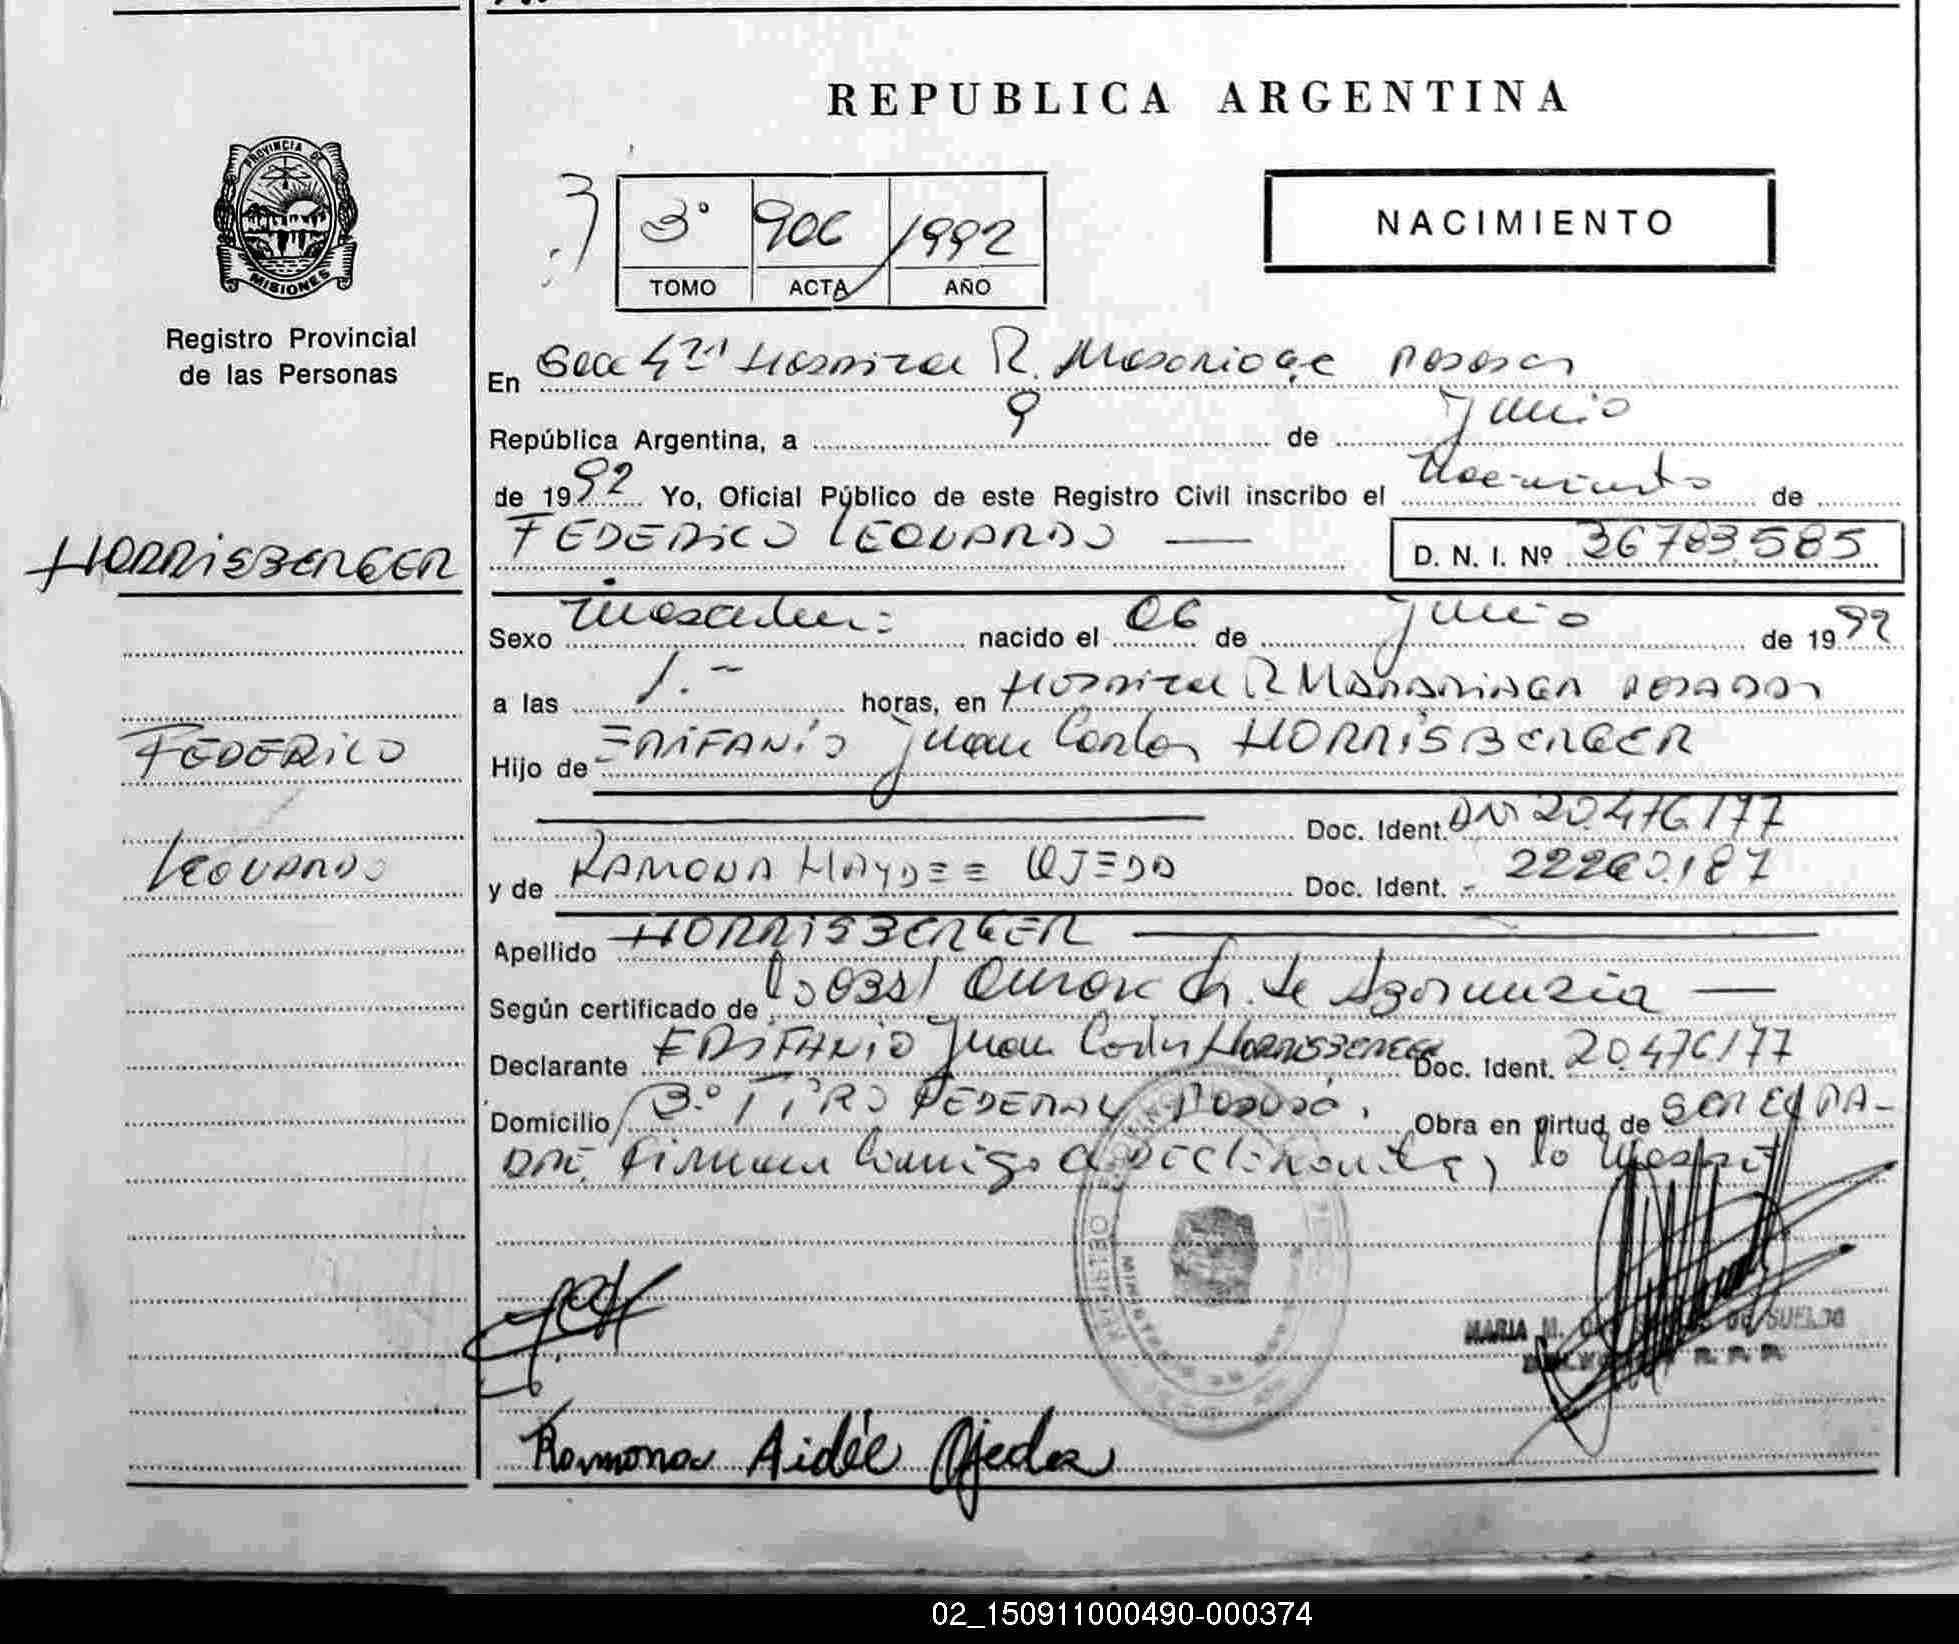 REPUBLICA ARGENTINA
PROVINCIA DE
MISIONES
Registro Provincial
de las Personas
3° 906 1992
TOMO ACTA AÑO
NACIMIENTO
En Hospital R. Posadas
República Argentina, a 9 de Junio
de 1992 Yo, Oficial Público de este Registro Civil inscribo el Nacimiento de
HORRISBERGER
FEDERICO LEONARDO D. N. I. Nº 36783585
Sexo Masculino nacido el 06 de Junio de 1992
a las 1.- horas, en Hospital R Madariaga Posadas
FEDERICO
Hijo de EPIFANIO Juan Carlos HORRISBERGER
Doc. Ident. DNI 20.476.177
LEONARDO
y de RAMONA HAYDEE OJEDA Doc. Ident. 22260.187
Apellido HORRISBERGER
Según certificado de
Declarante EPIFANIO Juan Carlos HORRISBERGER Doc. Ident. 20.476.177
Domicilio TIRO FEDERAL Obra en virtud de
Firman Conmigo
MARIA M. DE SUELDO
Ramona Aidée Ojeda
02_150911000490-000374